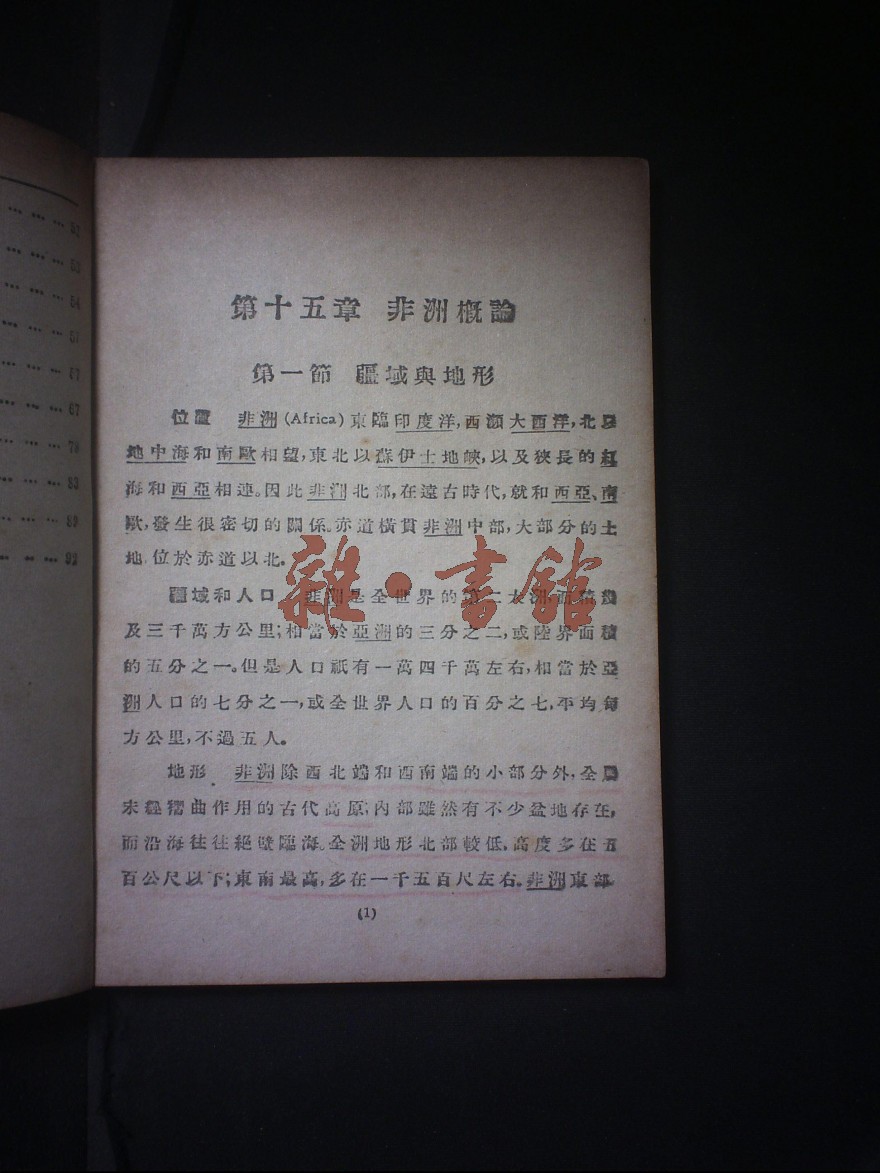 … … … 52
… … … 53
… … … 54
… … … 57
… … … 57
… … … 67
… … … 74
… … … 83
… … … 89
… … … 92
第十五章 非洲概論
第一節 疆域與地形
位置 非洲(Africa)東臨印度洋,西瀕大西洋,北以
地中海和南歐相望,東北以蘇伊士地峽,以及狹長的紅
海和西亞相連。因此非洲北部,在遠古時代,就和西亞、南
歐,發生很密切的關係。赤道橫貫非洲中部,大部分的土
地,位於赤道以北。
疆域和人口 非洲是全世界的第二大洲,面積幾
及三千萬方公里;相當於亞洲的三分之二,或陸界面積
的五分之一。但是人口祇有一萬四千萬左右,相當於亞
洲人口的七分之一,或全世界人口的百分之七,平均每
方公里,不過五人。
地形 非洲除西北端和西南端的小部分外,全屬
未經褶曲作用的古代高原;內部雖然有不少盆地存在,
而沿海往往絕壁臨海。全洲地形北部較低,高度多在五
百公尺以下;東南最高,多在一千五百尺左右。非洲東部
(1)
雜·書館